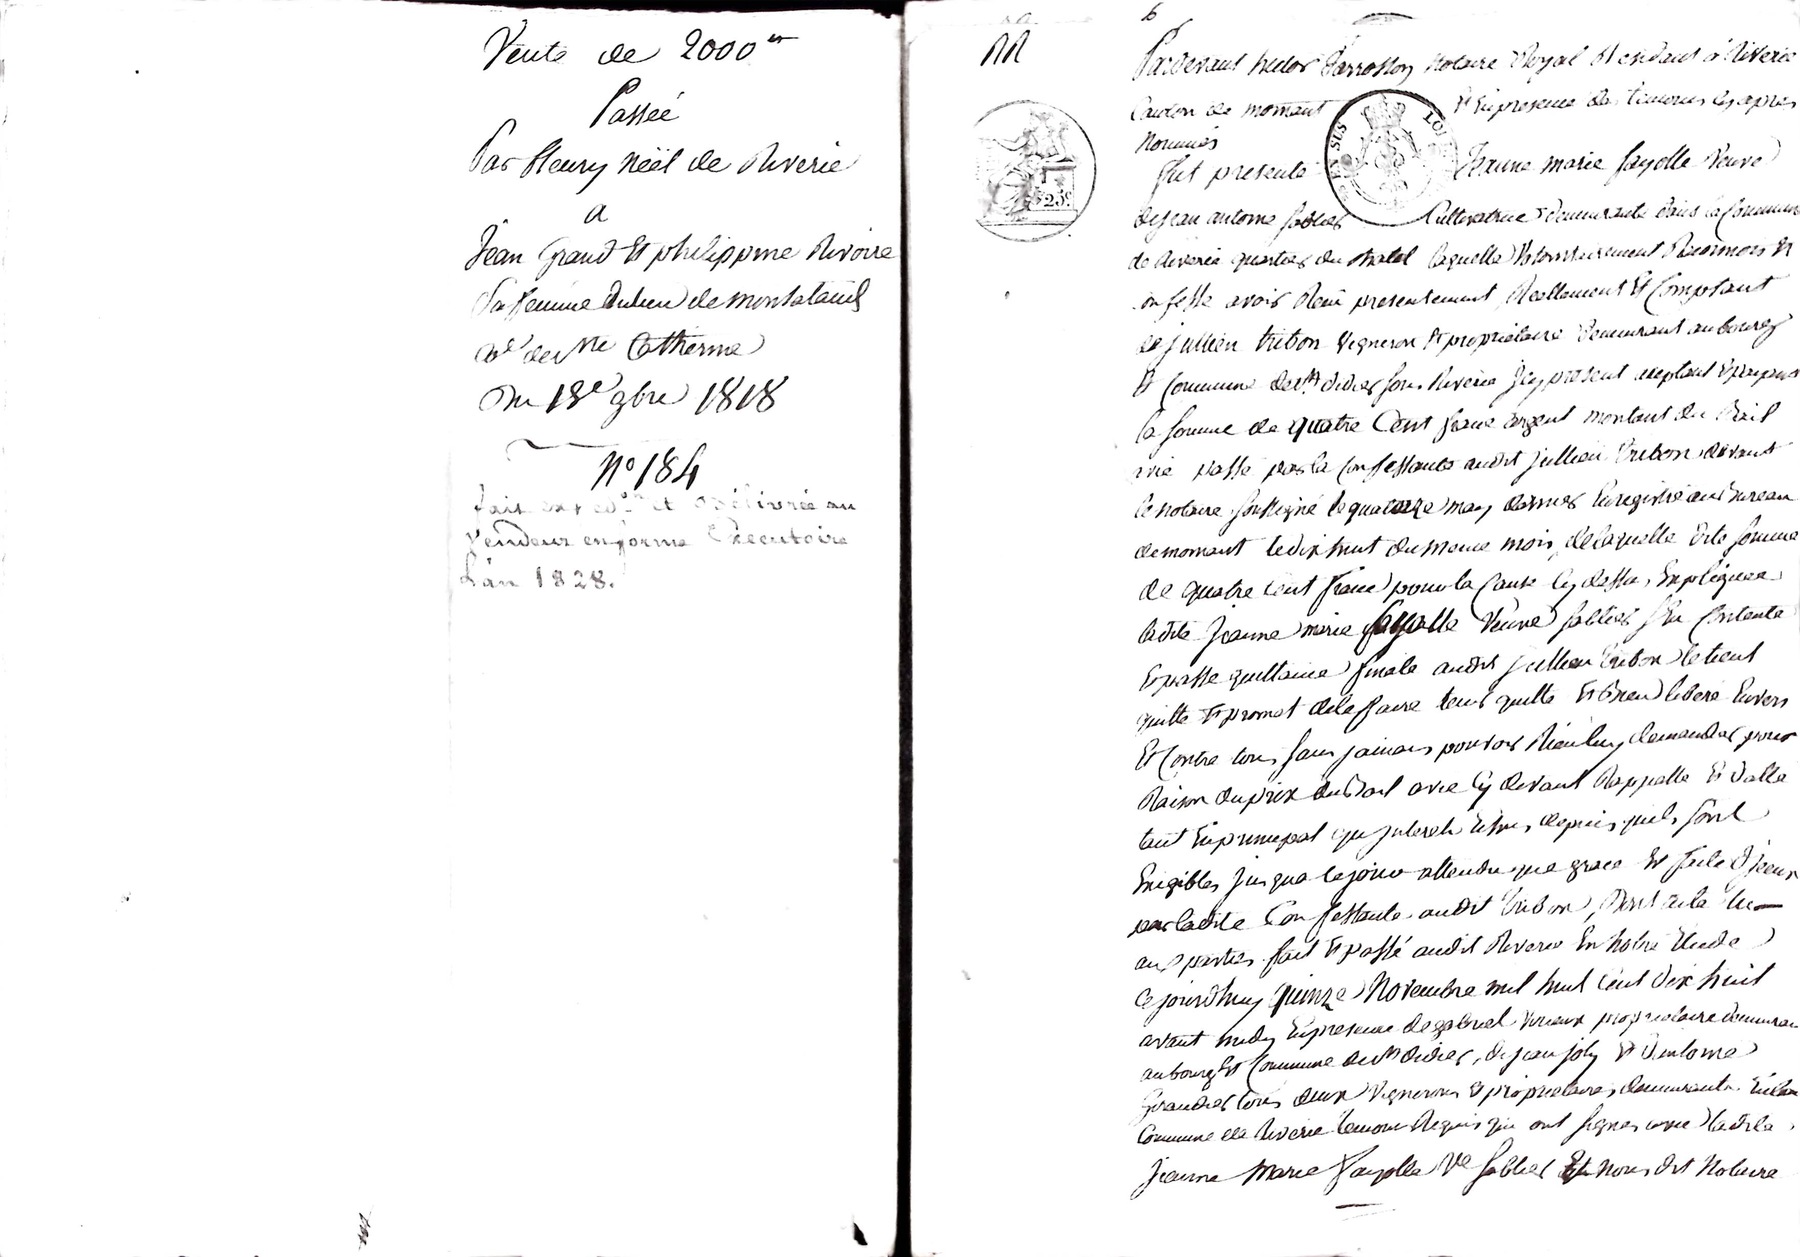 Vente de 2000 fr
Passée
Par fleury Néël de Riverie
a
Jean Grand Et philippine Rivoire
Sa femme du lieu de
de Ste Catherine
Du 18e 9bre 1818
N° 184
fait et délivrée au
vendeur en forme Executoire
L'an 1828.
6
Pardevant Parrosson Notaire Royal Residant à Riverie
Canton de mornant Et En presence des temoins cy apres
Nommés
EN SUS
1 F 25 c
fut presente Jeanne marie fayolle Veuve
de Jean antoine Sablier Cultivatrice demeurante dans la Commune
de Riverie quartier du laquelle Volontairement Reconnois Et
Confesse avoir Recu presentement Reellement Et Comptant
de Jullien tribon Vigneron Et proprietaire demeurant au bourg
Et Commune de St didier sous Riverie Icy present acceptant
la somme de quatre Cent franc argent montant du Bail
passé par la Confessante audit Jullien tribon devant
le Notaire soussigné le quatorze may dernier Enregistré au Bureau
de mornant le dix huit du meme mois, de laquelle dite somme
de quatre cent franc pour la Cause Cy dessus Expliquée
ladite Jeanne marie fayolle Veuve Sablier s'En Contente
Et passe quittance finale audit Jullien tribon le tient
quitte Et promet de le faire tenir quitte Et Bien libéré Envers
Et Contre tous sans jamais pouvoir Rien luy demander pour
Raison du prix du Bail Cy devant Rappelle Et datte
tant En principal qu'interets depuis quils sont
Exigibles jusqua ce jour attendu que grace Et faite d'Iceux
par ladite Confessante audit tribon, dont acte lu
aux parties fait Et passé audit Riverie En Notre Etude
Ce jourdhuy quinze Novembre mil huit cent dix huit
avant midy En presence de gabriel proprietaire demeurant
au bourg Et Commune de St didier, de Jean Joly Et d'antoine
tous deux Vignerons Et proprietaires demeurants
Commune de Riverie temoins Requis qui ont signés avec ladite
Jeanne Marie fayolle Ve Sablier Et Nous dit Notaire